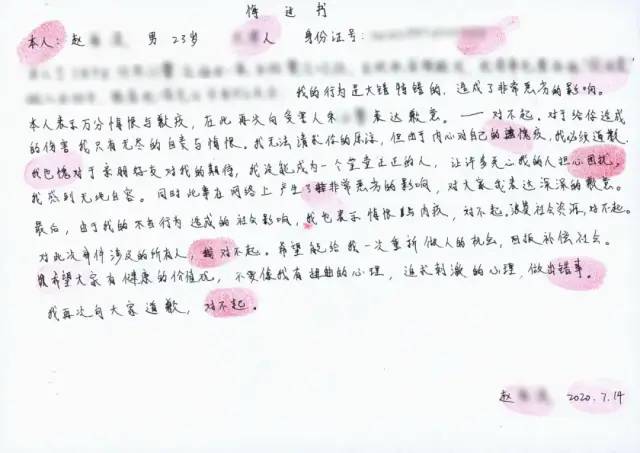 悔过书
本人：赵 男 23岁 人 身份证号：
我的行为是大错特错的，造成了非常恶劣的影响。
本人表示万分悔恨与歉疚，在此再次向受害人朱 表达歉意。——对不起。对于给你造成
的伤害我只有无尽的自责与悔恨。我无法请求你的原谅，但由于内心对自己的 愧疚，我必须道歉。
我也愧对于亲朋好友对我的期待，我没能成为一个堂堂正正的人，让许多关心我的人担心困扰，
我感到无地自容。同时此事在网络上产生了 非常恶劣的影响，对大家我表达深深的歉意。
最后，由于我的不当行为造成的社会影响，我也表示悔恨与内疚，对不起。浪费社会资源，对不起。
对此次事件涉及的所有人， 对不起。希望能给我一次重新做人的机会，回报补偿社会。
希望大家有健康的价值观，不要像我有扭曲的心理，追求刺激的心理，做出错事。
我再次向大家道歉，对不起。
赵 2020.7.14